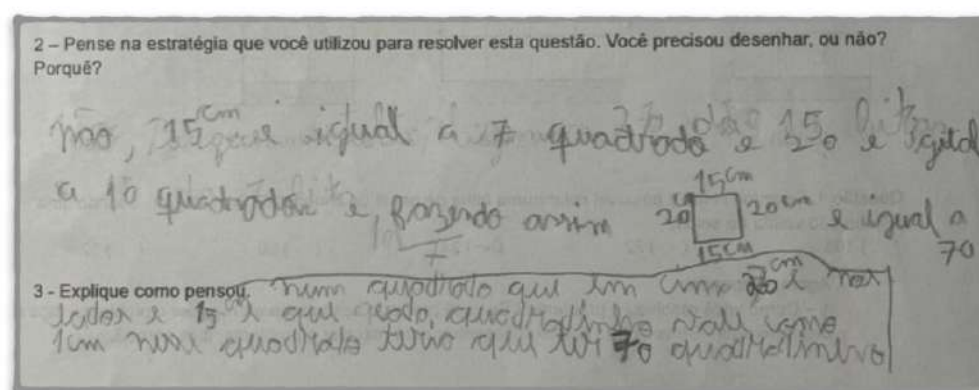 2 – Pense na estratégia que você utilizou para resolver esta questão. Você precisou desenhar, ou não?
Porquê?
não, 15 cm igual a 7 quadrado e 20 e igual
a 10 quadrados e, fazendo assim 20 cm 15 cm 20 cm 15 cm e igual a
70
3 - Explique como pensou. num quadrado que em cima 20 cm e nos
lados e 15 cm e que cada quadradinho vale como
1cm nese quadrado teria que ter 70 quadradinho